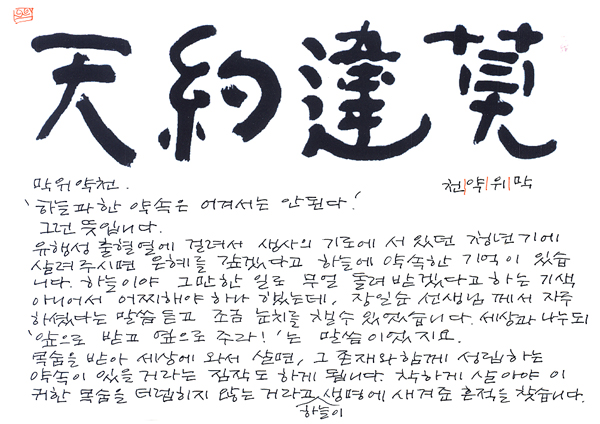 天約違莫
천약위막
막위약천.
'하늘과한 약속은 어겨서는 안된다.'
그런 뜻입니다.
유행성 출혈열에 걸려서 생사의 기로에 서 있던 청년기에
살려주시면 은혜를 갚겠다고 하늘에 약속한 기억이 있습
니다. 하늘이야 그만한 일로 무얼 돌려 받겠다고 하는 기색
아니어서 어찌해야 하나 했는데, 장일순 선생님께서 자주
하셨다는 말씀 듣고 조금 눈치를 챌수 있었습니다. 세상과 나누되
'앞으로 받고 옆으로 주라!'는 말씀이었지요.
목숨을 받아 세상에 와서 살면, 그 존재와 함께 성립하는
약속이 있을 거라는 짐작도 하게 됩니다. 착하게 살아야 이
귀한 목숨을 더렵히지 않는 거라고 하늘이 생명에 새겨준 흔적을 찾습니다.